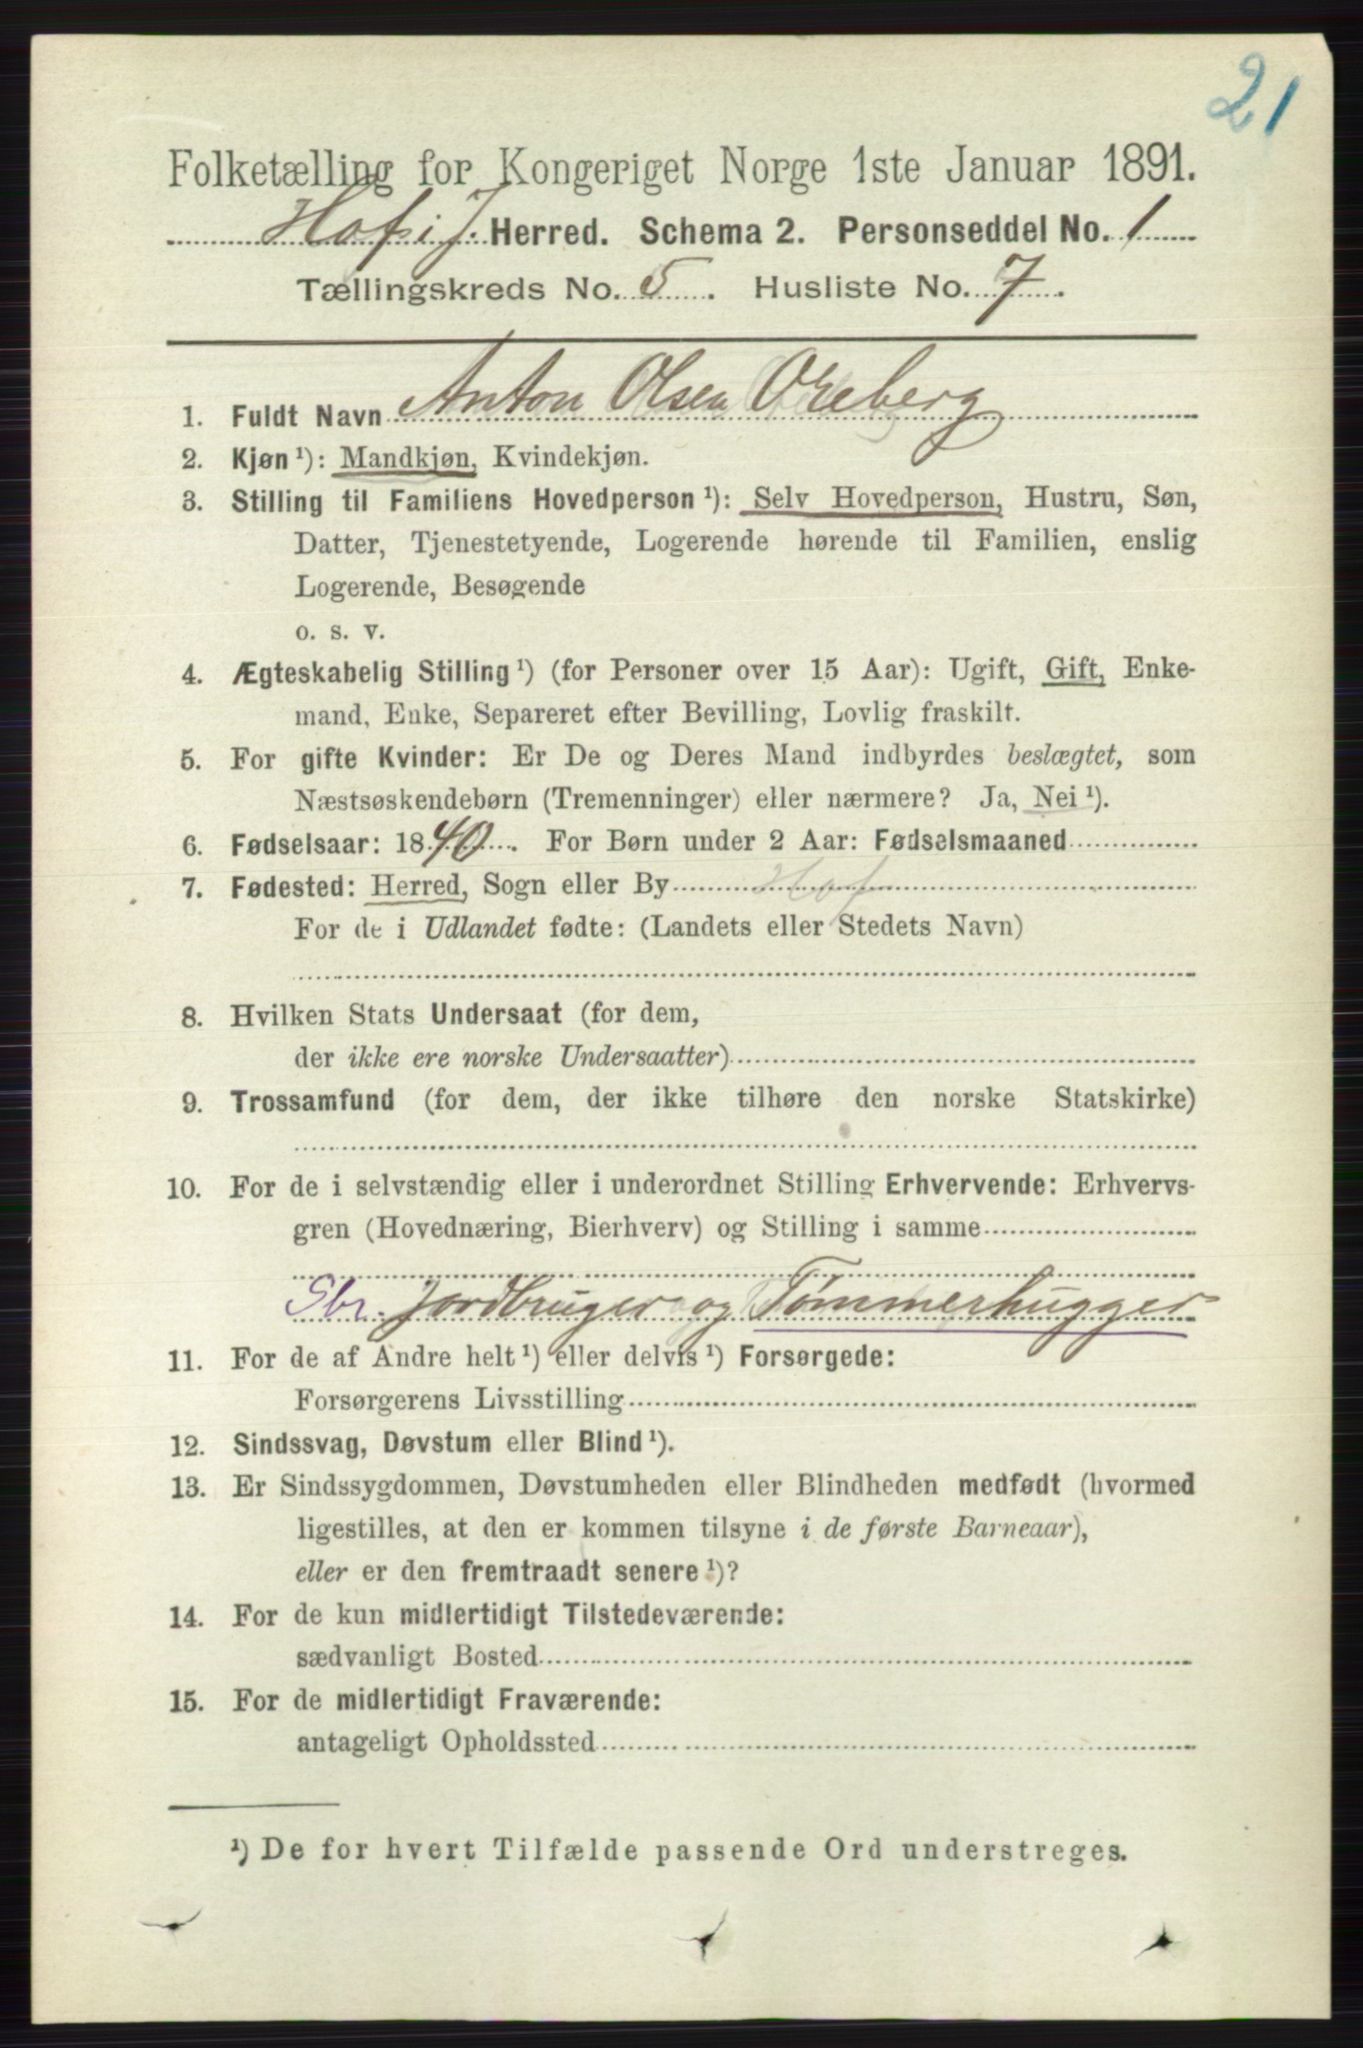 21
Folketælling for Kongeriget Norge 1ste Januar 1891.
Hof i J. Herred. Schema 2. Personseddel No. 1
Tællingskreds No. 5. Husliste No. 7.
1. Fuldt Navn Anton Olsen Oreberg
2. Kjøn ¹): Mandkjøn, Kvindekjøn.
3. Stilling til Familiens Hovedperson ¹): Selv Hovedperson, Hustru, Søn,
Datter, Tjenestetyende, Logerende hørende til Familien, enslig
Logerende, Besøgende
o. s. v.
4. Ægteskabelig Stilling ¹) (for Personer over 15 Aar): Ugift, Gift, Enke-
mand, Enke, Separeret efter Bevilling, Lovlig fraskilt.
5. For gifte Kvinder: Er De og Deres Mand indbyrdes beslægtet, som
Næstsøskendebørn (Tremenninger) eller nærmere? Ja, Nei ¹).
6. Fødselsaar: 1840. For Børn under 2 Aar: Fødselsmaaned
7. Fødested: Herred, Sogn eller By Hof
For de i Udlandet fødte: (Landets eller Stedets Navn)
8. Hvilken Stats Undersaat (for dem,
der ikke ere norske Undersaatter)
9. Trossamfund (for dem, der ikke tilhøre den norske Statskirke)
10. For de i selvstændig eller i underordnet Stilling Erhvervende: Erhvervs-
gren (Hovednæring, Bierhverv) og Stilling i samme
Sbr. Jordbruger og Tømmerhugger
11. For de af Andre helt ¹) eller delvis ¹) Forsørgede:
Forsørgerens Livsstilling
12. Sindssvag, Døvstum eller Blind ¹).
13. Er Sindssygdommen, Døvstumheden eller Blindheden medfødt (hvormed
ligestilles, at den er kommen tilsyne i de første Barneaar),
eller er den fremtraadt senere ¹)?
14. For de kun midlertidigt Tilstedeværende:
sædvanligt Bosted
15. For de midlertidigt Fraværende:
antageligt Opholdssted
¹) De for hvert Tilfælde passende Ord understreges.